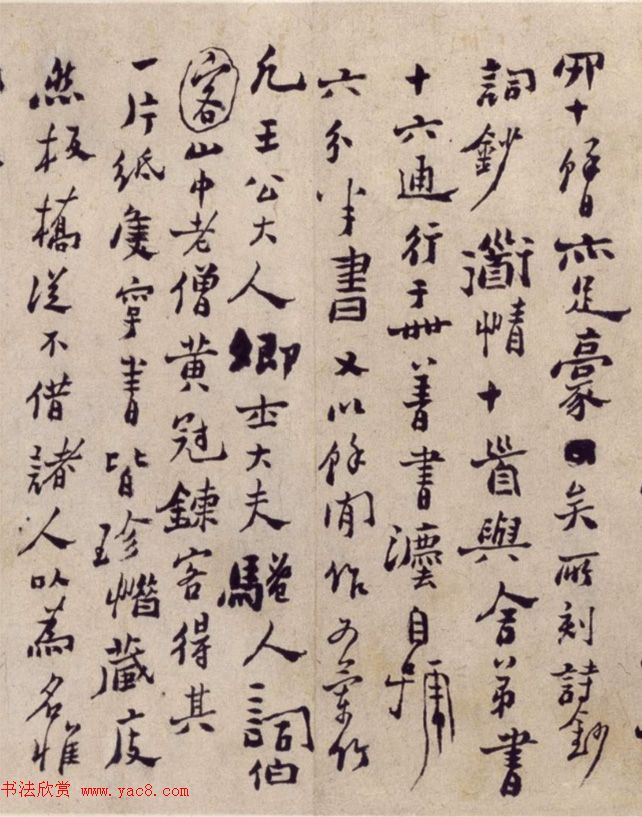 亦足豪矣所刻詩鈔
詞鈔道情十首與舍弟書
十六通行于世善書灋自號
六分半書又以餘閒作為蘭竹
凡王公大人卿士大夫騷人詞伯
客山中老僧黃冠鍊客得其
一片紙隻字書皆珍惜藏庋
然板橋從不借諸人以為名惟
书法欣赏 www.yac8.com